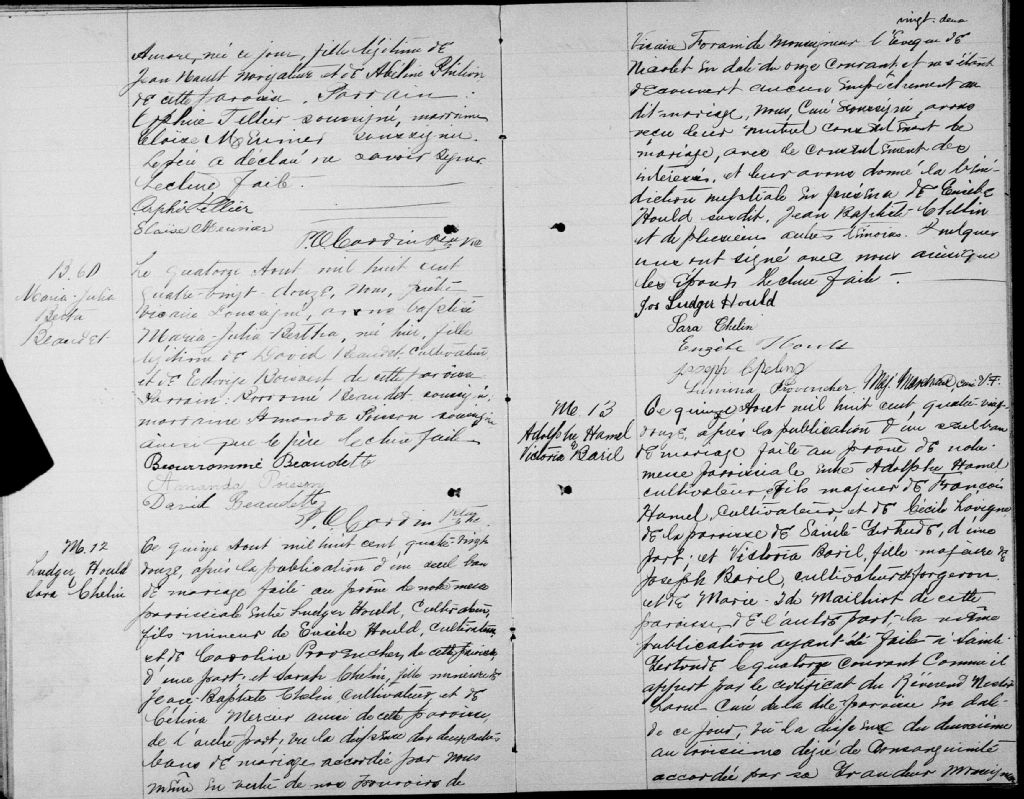 Aurore, née ce jour, fille légitime de
Jean navigateur et de Philion
de cette paroisse. Parrain :
Orphir Tellier soussigné, marraine
Eloise Meunier soussignée.
Le père a déclaré ne savoir signer
Lecture faite.
Orphir Tellier
Eloïse Meunier
P.O Cardin Ptre Vic
B. 60
Maria-Julia
Berta
Beaudet
Le quatorze Aout mil huit cent
quatre-vingt-douze, Nous, prêtre
vicaire soussigné, avons baptisé
Maria-Julia Bertha, née hier, fille
légitime de David Beaudet cultivateur
et de Edwige Boisvert de cette paroisse
Parrain Beaudet soussigné,
marraine Amanda Poisson soussignée
ainsi que le père Lecture faite
Beaudette
Amanda Poisson
David Beaudette
P. O Cardin Ptre Vic
M. 12
Ludger Hould
Sara Thelin
Ce quinze Aout mil huit cent, quatre-vingt
douze, après la publication d'un seul ban
de mariage faite au prône de notre messe
paroissiale entre Ludger Hould, cultivateur,
fils mineur de Eusèbe Hould, cultivateur
et de Caroline Provencher de cette paroisse
d'une part et Sarah Thelin, fille mineure de
Jean-Baptiste Thelin cultivateur et de
Célina Mercier aussi de cette paroisse,
de l'autre part, vu la dispense des deux autres
bans de mariage accordée par nous
même en vertu de nos pouvoirs de
vingt-deux
Vicaire Forain de Monseigneur l'Evêque de
Nicolet en date du onze courant et ne s'étant
découvert aucun empêchement au
dit mariage, Nous, Curé soussigné, avons
reçu leur mutuel consentement de
mariage, avec le consentement des
intéressés, et leur avons donné la béné-
diction nuptiale en présence de Eusèbe
Hould susdit, Jean Baptiste Thelin
et de plusieurs autres témoins. Quelques
uns ont signé avec nous ainsi que
les Epoux Lecture faite.
Jos Ludger Hould
Sara Thelin
Eusèbe Hould
Joseph Thelin
Provencher Marchand curé V.F.
M. 13
Adolphe Hamel
&
Victoria Baril
Ce quinze Aout mil huit cent, quatre-vingt
douze, après la publication d'un seul ban
de mariage faite au prône de notre
messe paroissiale entre Adolphe Hamel
cultivateur fils majeur de François
Hamel, cultivateur et de Cécile Lavigne
de la paroisse de Sainte Gertrude, d'une
part; et Victoria Baril, fille majeure de
Joseph Baril, cultivateur & forgeron
et de Marie Mailhiot de cette
paroisse, de l'autre part; la même
publication ayant été faite à Sainte
Gertrude le quatorze courant comme il
appert par le certificat du Révérend
Curé de la dite paroisse en date
de ce jour, vu la dispense du deuxième
au troisième dégré de consanguinité
accordée par sa Grandeur Monseigneur